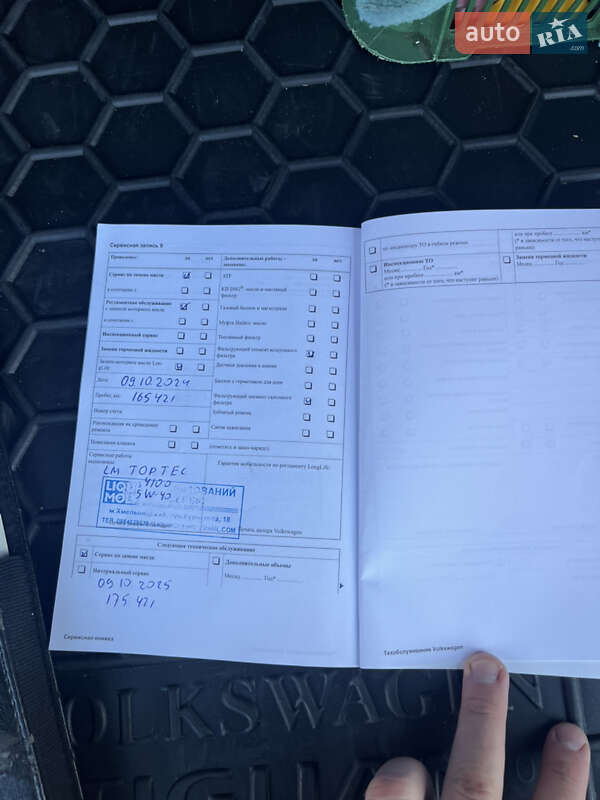 auto RIA .com
Сервисная запись 9
Проведено: да нет
Сервис по замене масла
Регламентное обслуживание
с заменой моторного масла
Инспекционный сервис
Замена тормозной жидкости
Замена моторного масла Lon
gLife
Дата: 09.10.2024
Пробег, км: 165421
Номер счета
Рекомендации по проведению
ремонта
Пожелания клиента
Сервисные работы
выполнены:
LM TOPTEC
4100
5W-40
LIQUI
MOLY
Дополнительные работы –
да нет
ATF
КП DSG® масло и масляный
фильтр
Газовый баллон и магистрали
Муфта Haldex: масло
Топливный фильтр
Фильтрующий элемент воздушного
фильтра
Датчики давления в шинах
Баллон с герметиком для шин
Фильтрующий элемент салонного
фильтра
Зубчатый ремень
Свечи зажигания
(отметить в заказ-наряде)
Гарантия мобильности по регламенту LongLife:
печать дилера Volkswagen
Следующее техническое обслуживание
Сервис по замене масла
Интервальный сервис
09.10.2025
175421
Дополнительные объемы
Месяц Год*
Сервисная книжка
по индикатору ТО в гибком режиме
Инспекционное ТО
Месяц Год*
или при пробеге км*
(* в зависимости от того, что наступит раньше)
или при пробеге км*
(* в зависимости от того, что наступит
раньше)
Замена тормозной жидкости
Месяц Год*
Техобслуживание Volkswagen
VOLKSWAGEN
TIGUAN